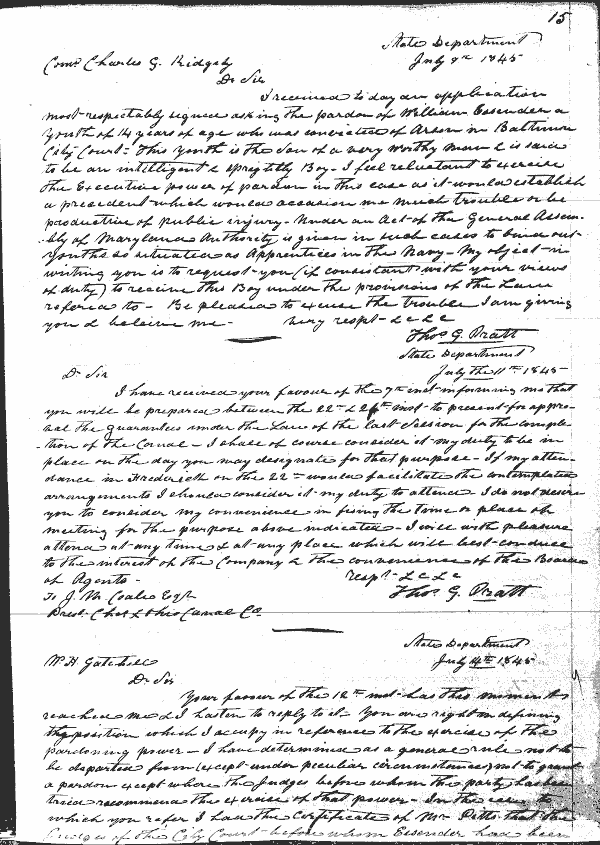 15
State Department
July 9th 1845
Comr Charles G. Ridgely
Dr Sir
I received to day an application
most respectably signed asking the pardon of William Essender a
youth of 14 years of age who was convicted of Arson in Baltimore
City Court - This youth is the son of a very worthy man & is said
to be an intelligent & sprightly Boy - I feel reluctant to exercise
the Executive power of pardon in this case as it would establish
a precedent which would occasion me much trouble or be
productive of public injury - Under an Act of the General Assem-
bly of Maryland Authority is given in such cases to bind out
youths so situated as Apprentices in the Navy - My object in
writing you is to request you (if consistant with your views
of duty) to receive this Boy under the provisions of the Law
refered to - Be pleased to excuse the trouble I am giving
you & beleive me - very respt &c &c
Thos G. Pratt
State Department
July the 11th 1845
Dr Sir
I have received your favour of the 7th inst informing me that
you will be prepared between the 22nd & 26th inst to present for appro-
val the guarantees under the Law of the last Session for the comple-
tion of the Canal - I shall of course consider it my duty to be in
place on the day you may designate for that purpose - If my atten-
dance in Frederick on the 22nd would facilitate the contemplated
arrangements I should consider it my duty to attend I do not desire
you to consider my convenience in fixing the time or place of
meeting for the purpose above indicated - I will with pleasure
attend at any time & at any place which will best conduce
to the interest of the Company & the convenience of the Board
of Agents - respt &c &c
To J. M. Coale Esqr Thos G. Pratt
Prest Ches & Ohio Canal Co.
State Department
July 14th 1845
W. H. Gatchell
Dr Sir
Your favour of the 12th inst has this moment
reached me & I hasten to reply to it - You are right in defining
the position which I occupy in reference to the exercise of the
pardoning power - I have determined as a general rule not to
be departed from (except under peculiar circumstances) not to grant
a pardon except where the Judges before whom the party has been
tried recommend the exercise of that power - In the case to
which you refer I have the Certificate of Mr Pitts that the
Judges of the City Court before whom Essender had been